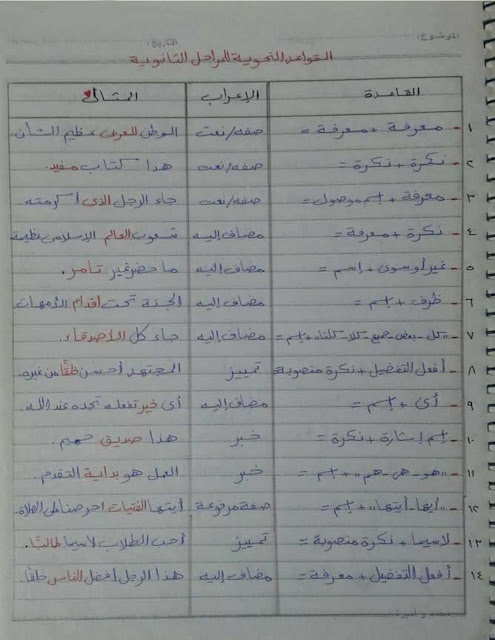 الموضوع: التاريخ:
القواعد النحوية للمراحل الثانوية
القاعدة الإعراب المثال
١- معرفة + معرفة = صفة/نعت الوطن العربى عظيم الشأن.
٢- نكرة + نكرة = صفة/نعت هذا كتاب مفيد.
٣- معرفة + اسم موصول = صفة/نعت جاء الرجل الذى أكرمته
٤- نكرة + معرفة = مضاف إليه شعوب العالم الإسلامى عظيمة
٥- غير أو سوى + اسم = مضاف إليه ما حضر غير تامر.
٦- ظرف + اسم = مضاف إليه الجنة تحت أقدام الأمهات
٧- «كل - بعض - جميع - كلا - كلتا» + اسم = مضاف إليه جاء كل الأصدقاء.
٨- أفعل التفضيل + نكرة منصوبة تمييز المجتهد أحسن خلقًا من غيره.
٩- أى + اسم = مضاف إليه أى خير تفعله تجده عند الله.
١٠- اسم إشارة + نكرة = خبر هذا صديق
١١- «هو - هى - هم» + اسم = خبر العمل هو بداية التقدم.
١٢- «أيها - أيتها» + اسم = صفة مرفوعة أيتها الفتيات احرصنا على الصلاة.
١٣- لاسيما + نكرة منصوبة = تمييز أحب الطلاب لاسيما طالبًا.
١٤- أفعل التفضيل + معرفة = مضاف إليه هذا الرجل أفضل الناس خلقًا.